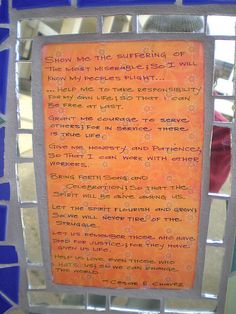 SHOW ME THE SUFFERING OF
THE MOST MISERABLE; SO I WILL
KNOW MY PEOPLES PLIGHT...
...HELP ME TO TAKE RESPONSIBILITY
FOR MY OWN LIFE; SO THAT I CAN
BE FREE AT LAST.
GRANT ME COURAGE TO SERVE
OTHERS; FOR IN SERVICE THERE
IS TRUE LIFE.
GIVE ME HONESTY AND PATIENCE;
SO THAT I CAN WORK WITH OTHER
WORKERS.
BRING FORTH SONG AND
CELEBRATION; SO THAT THE
SPIRIT WILL BE ALIVE AMONG US.
LET THE SPIRIT FLOURISH AND GROW;
SO WE WILL NEVER TIRE OF THE
STRUGGLE.
LET US REMEMBER THOSE WHO HAVE
DIED FOR JUSTICE; FOR THEY HAVE
GIVEN US LIFE.
HELP US LOVE EVEN THOSE WHO
HATE US; SO WE CAN CHANGE
THE WORLD.
- CESAR E. CHAVEZ